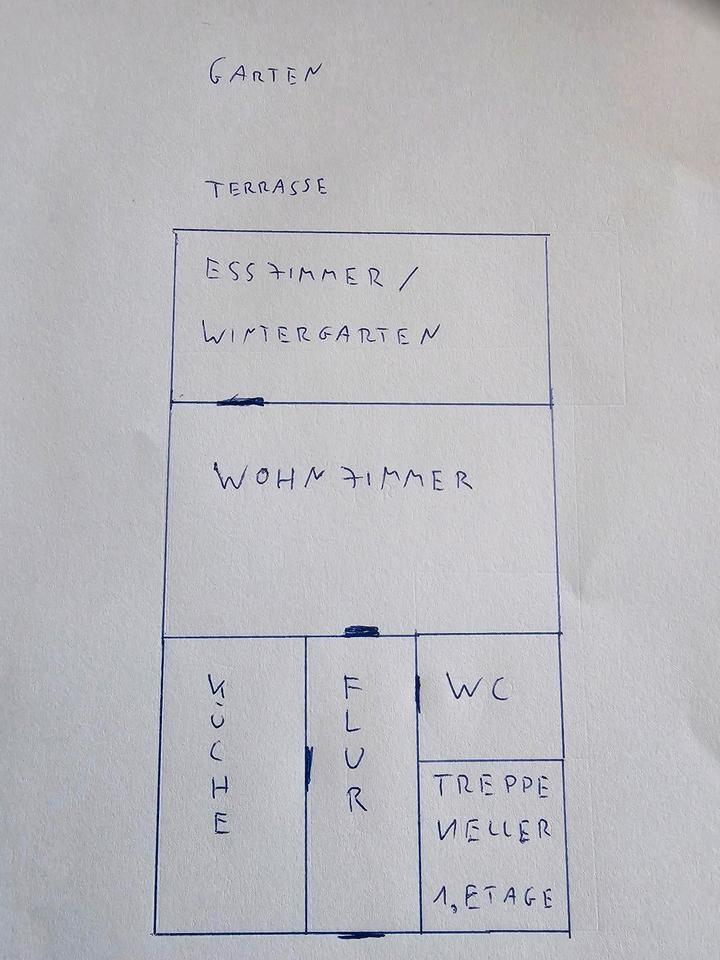 GARTEN
TERRASSE
ESSZIMMER /
WINTERGARTEN
WOHNZIMMER
KÜCHE
FLUR
WC
TREPPE
KELLER
1. ETAGE